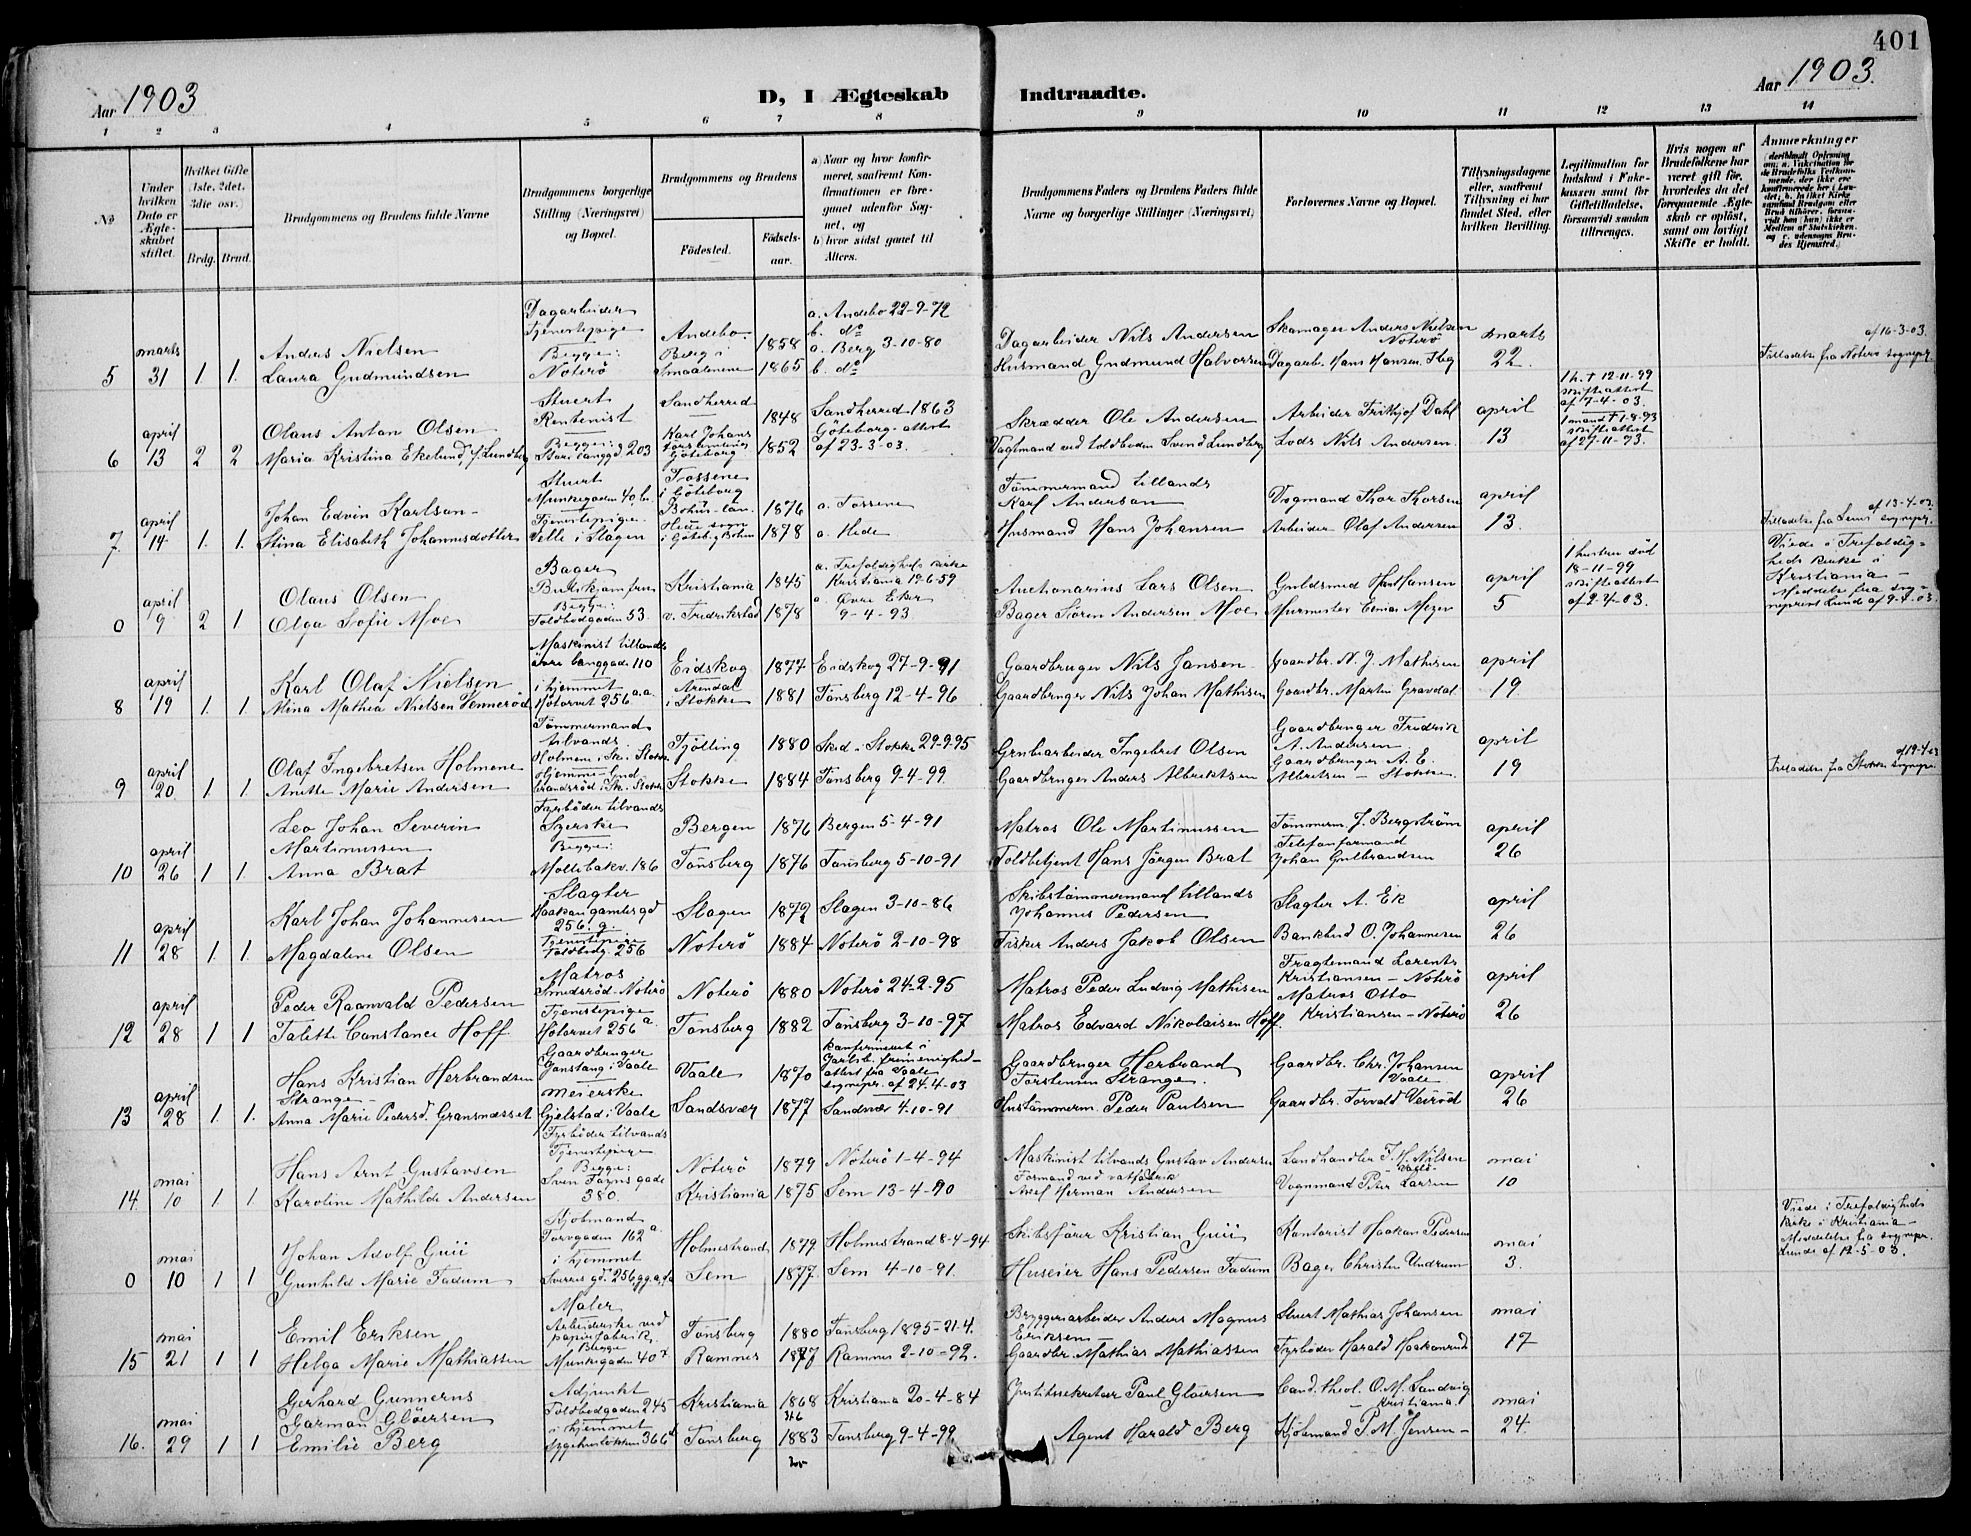 401
Aar 1903
D, I Ægteskab Indtraadte.
Aar 1903.
1 2 3 4 5 6 7 8 9 10 11 12 13 14
No
Under hvilken Dato er Ægteskabet stiftet.
Hvilket Gifte (1ste, 2det, 3die osv.)
Brdg. Brud.
Brudgommens og Brudens fulde Navne
Brudgommens borgerlige Stilling (Næringsvei) og Bopæl.
Brudgommens og Brudens
Fødested.
Fødselsaar.
a) Naar og hvor konfirmeret, saafremt Konfirmationen er foregaaet udenfor Sognet, og
b) hvor sidst gaaet til Alters.
Brudgommens Faders og Brudens Faders fulde Navne og borgerlige Stillinger (Næringsvei)
Forlovernes Navne og Bopæl.
Tillysningsdagene eller, saafremt Tillysning ei har fundet Sted, efter hvilken Bevilling.
Legitimation for Indskud i Enkekassen samt for Giftetilladelse, forsaavidt saadan tiltrænges.
Hvis nogen af Brudefolkene har været gift før, hvorledes da det foregaaende Ægteskab er opløst, samt om lovligt Skifte er holdt.
Anmerkninger
5 marts 31 1 1.
Anders Nielsen
Laura Gudmundsen
Dagarbeider
Tjenestepige
Begge: Nøterø
Andebo 1858
Berg i Smaalenene 1865
a. Andebo 22-9-72
b. do
a. Berg 3-10-80
b. do
Dagarbeider Nils Andersen
Husmand Gudmund Halvorsen
Skomager Anders Nielsen Nøterø
Dagarb. Hans Hansen
marts 22.
af 16-3-03.
Tilladelse fra Nøterø sognepr.
6 april 13 2 2
Olaus Anton Olsen
Maria Kristina Ekelund, f. Lundberg
Stuert
Rentenist
Begge: Storelanggd. 203
Sandherred 1848
Karl Johans forsamling Göteborg 1852
Sandherred 1863
Göteborg. attest af 23-3-03.
Skrædder Ole Andersen
Vagtmand ved toldboden Svend Lundberg
Arbeider Frithjof Dahl
Lods Nils Andersen.
april 13
1 h. † 12-11-99
skifteattest af 7-4-03.
1 mand † 1-8-93
skifteattest af 27-11-93.
7. april 14 1. 1.
Johan Edvin Karlson
Stina Elisabeth Johannesdotter
Stuert
Munkegaden 40 b.
Tjenestepige
Velle i Slagen
Tossene i Göteborg Bohus län 1876
Hede sogn i Göteb. g Bohus 1878
a. Tossene
a. Hede
Tømmermand tillands Karl Anderson
Husmand Hans Johansen
Vogmand Thor Thorsen
Arbeider Olaf Andersen
april 13.
af 13-4-03.
Tilladelse fra Sems sognepr.
0 april 9 2 1
Olaus Olsen
Olga Sofie Moe
Bager
Butikjomfru
Begge: Toldbodgaden 53.
Kristiania 1845
v. Fredrikstad 1878
a. Trefoldigheds kirke Kristiania 19-6-59
a. Øvre Eker 9-4-93
Auctionarius Lars Olsen
Bager Søren Andersen Moe
Guldsmed Hans Hansen
Murmester Einar Meyer
april 5
1 hustru død 18-11-99
skifteattest af 2-4-03.
Viede i Trefoldigheds kirke i Kristiania —
Meddelelse fra sognepræst Lund af 9-4-03.
8 april 19 1. 1.
Karl Olaf Nielsen
Alina Mathea Nielsen Vennerød
Maskinist tillands
Øvre langgade 110
i hjemmet
Høtorvet 256 a.a.
Eidskog 1877
Arendal i Stokke 1881
Eidskog 27-9-91
Tønsberg 12-4-96
Gaardbruger Nils Jansen
Gaardbruger Nils Johan Mathisen
Gaardbr. N. J. Mathisen
Gaardbr. Martin Gravdal
april 19.
9 april 20. 1 1
Olaf Ingebretsen Holmene
Anette Marie Andersen
Tømmermand tilvands
Holmene i Sk. i Stokke
Hjemme Gud.
brandsrød i Sk. i Stokke
Tjølling 1880
Stokke 1884
Skd. i Stokke 29-9-95
Tønsberg 9-4-99.
Grubearbeider Ingebret Olsen
Gaardbruger Anders Albrektsen
Gaardbruger Fredrik A. Andersen
Gaardbruger A. E. Albretsen — Stokke.
april 19
af 19-4-03
Tilladelse fra Stokke sognepr.
10 april 26 1 1
Leo Johan Severin Martinussen
Anna Brat
Fyrbøder tilvands
Syerske
Begge: Møllebakv. 186
Bergen 1876
Tønsberg 1876
Bergen 5-4-91
Tønsberg 5-10-91
Matros Ole Martinussen
Toldbetjent Hans Jørgen Brat
Tømmerm. J. Bergstrøm
Telefonformand Johan Gulbrandsen
april 26
11 april 28 1. 1.
Karl Johan Johannesen
Magdalene Olsen
Slagter
Haakon gamles gd 256. g.
Tjenestepi.
Toldbdg. 256
Slagen 1872
Nøterø 1884
Slagen 3-10-86
Nøterø 2-10-98
Skibstømmermand tillands Johannes Pedersen
Fisker Anders Jakob Olsen
Slagter A. Ek
Bankbud O. Johannesen
april 26
12 april 28 1 1
Peder Raanvald Pedersen
Talette Constance Hoff
Matros
Smidsrød. Nøterø
Tjenestepige
Høtorvet 256 a
Nøterø 1880
Tønsberg 1882
Nøterø 24-2-95
Tønsberg 3-10-97
Matros Peder Ludvig Mathisen
Matros Edvard Nikolaisen Hoff.
Fragtemand Lorents Kristiansen — Nøterø
Matros Otto Kristiansen - Nøterø
april 26
13 april 28 1. 1.
Hans Kristian Herbrandsen Strange —
Anna Marie Pedersd. Gransnæsset
Gaardbruger
Ganstang i Vaale
Meierske
Gjelstad i Vaale
Vaale 1870
Sandsvær 1877
konfirmeret i Jarlsb. frimenighed — attest fra Vaale sognepr. af 24.4-03
Sandsvær 4-10-91
Gaardbruger Herbrand Torstensen Strange.
Hustømmerm. Peder Paulsen
Gaardbr. Chr. Johansen Vaale
Gaardbr. Torvald Veirød
april 26
14. mai 10 1 1
Hans Arnt Gustavsen
Karoline Mathilde Andersen
Fyrbøder tilvands
Tjenestepige
Begge: Sven Føyns gade 380.
Nøterø 1879
Kristiania 1875
Nøterø 1-4-94
Sem 13-4-90
Maskinist tilvands Gustav Andersen
Formand ved vatfabrik Axel Herman Andersen
Landhandler J. H. Nilsen Vaale
Vognmand Peter Larsen
mai 10
0 mai 10 1 1
Johan Adolf Guii
Gunhild Marie Fadum
Kjøbmand
Torvgaden 162 a.
i hjemmet
Sverres gd. 256
Holmestrand 1879
Sem 1877.
Holmestrand 8-4-94
Sem 4-10-91.
Skibsfører Kristian Guii
Huseier Hans Pedersen Fadum
Kontorist Haakon Pedersen
Bager Christen Undrum
mai 3.
Viede i Trefoldigheds kirke i Kristiania —
Meddelelse fra sognepr. Lunde af 12-5-03.
15 mai 21 1 1
Emil Eriksen
Helga Marie Mathiassen
Maler
Arbeiderske ved papirfabrik.
Begge Munkegaden 40
Tønsberg 1880
Ramnes 1877
Tønsberg 1895-21-4.
Ramnes 2-10-92.
Bryggeriarbeider Anders Magnus Eriksen —
Gaardbr. Mathias Mathiassen
Stuert Mathias Johansen
Fyrbøder Harald Haakonrud
mai 17
16. mai 29 1 1
Gerhard Gunnerus Garman Gløersen
Emilie Berg
Adjunkt
Toldbodgaden 245
i hjemmet
Sygehusløkken 366
Kristiania 1868
Tønsberg 1883
Kristiania 20-4-84
Tønsberg 9-4-99
Justitssekretær Paul Gløersen
Agent Harald Berg
Cand. theol. O. M. Sandvig — Kristiania.
Kjøbmand P. M. Jensen —
mai 24.